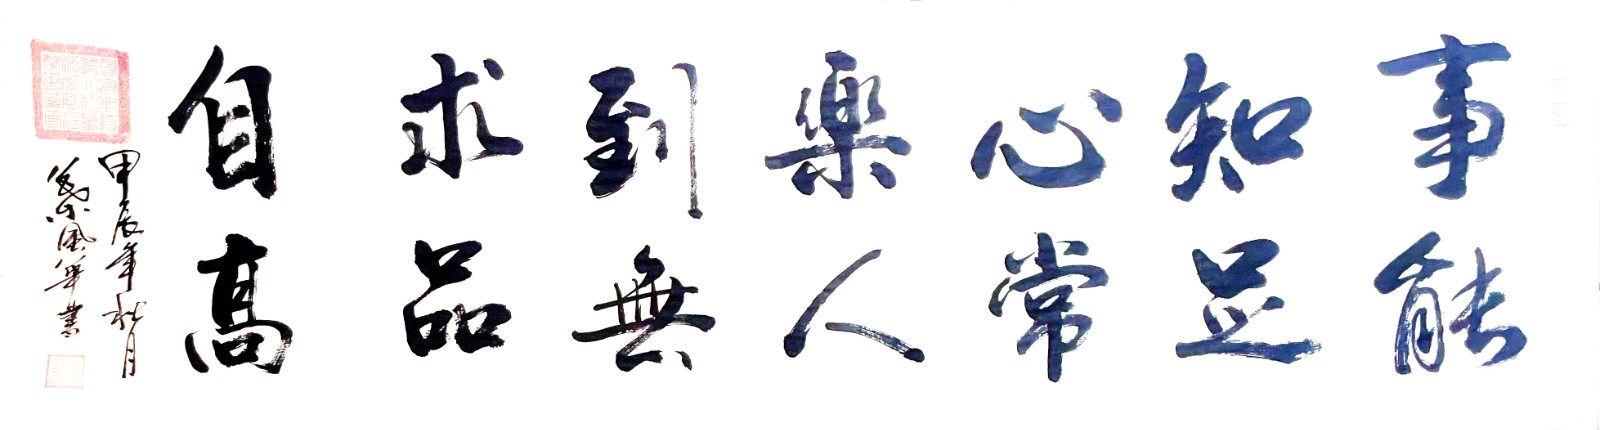 事能
知足
心常
樂人
到無
求品
自高
甲辰年秋月